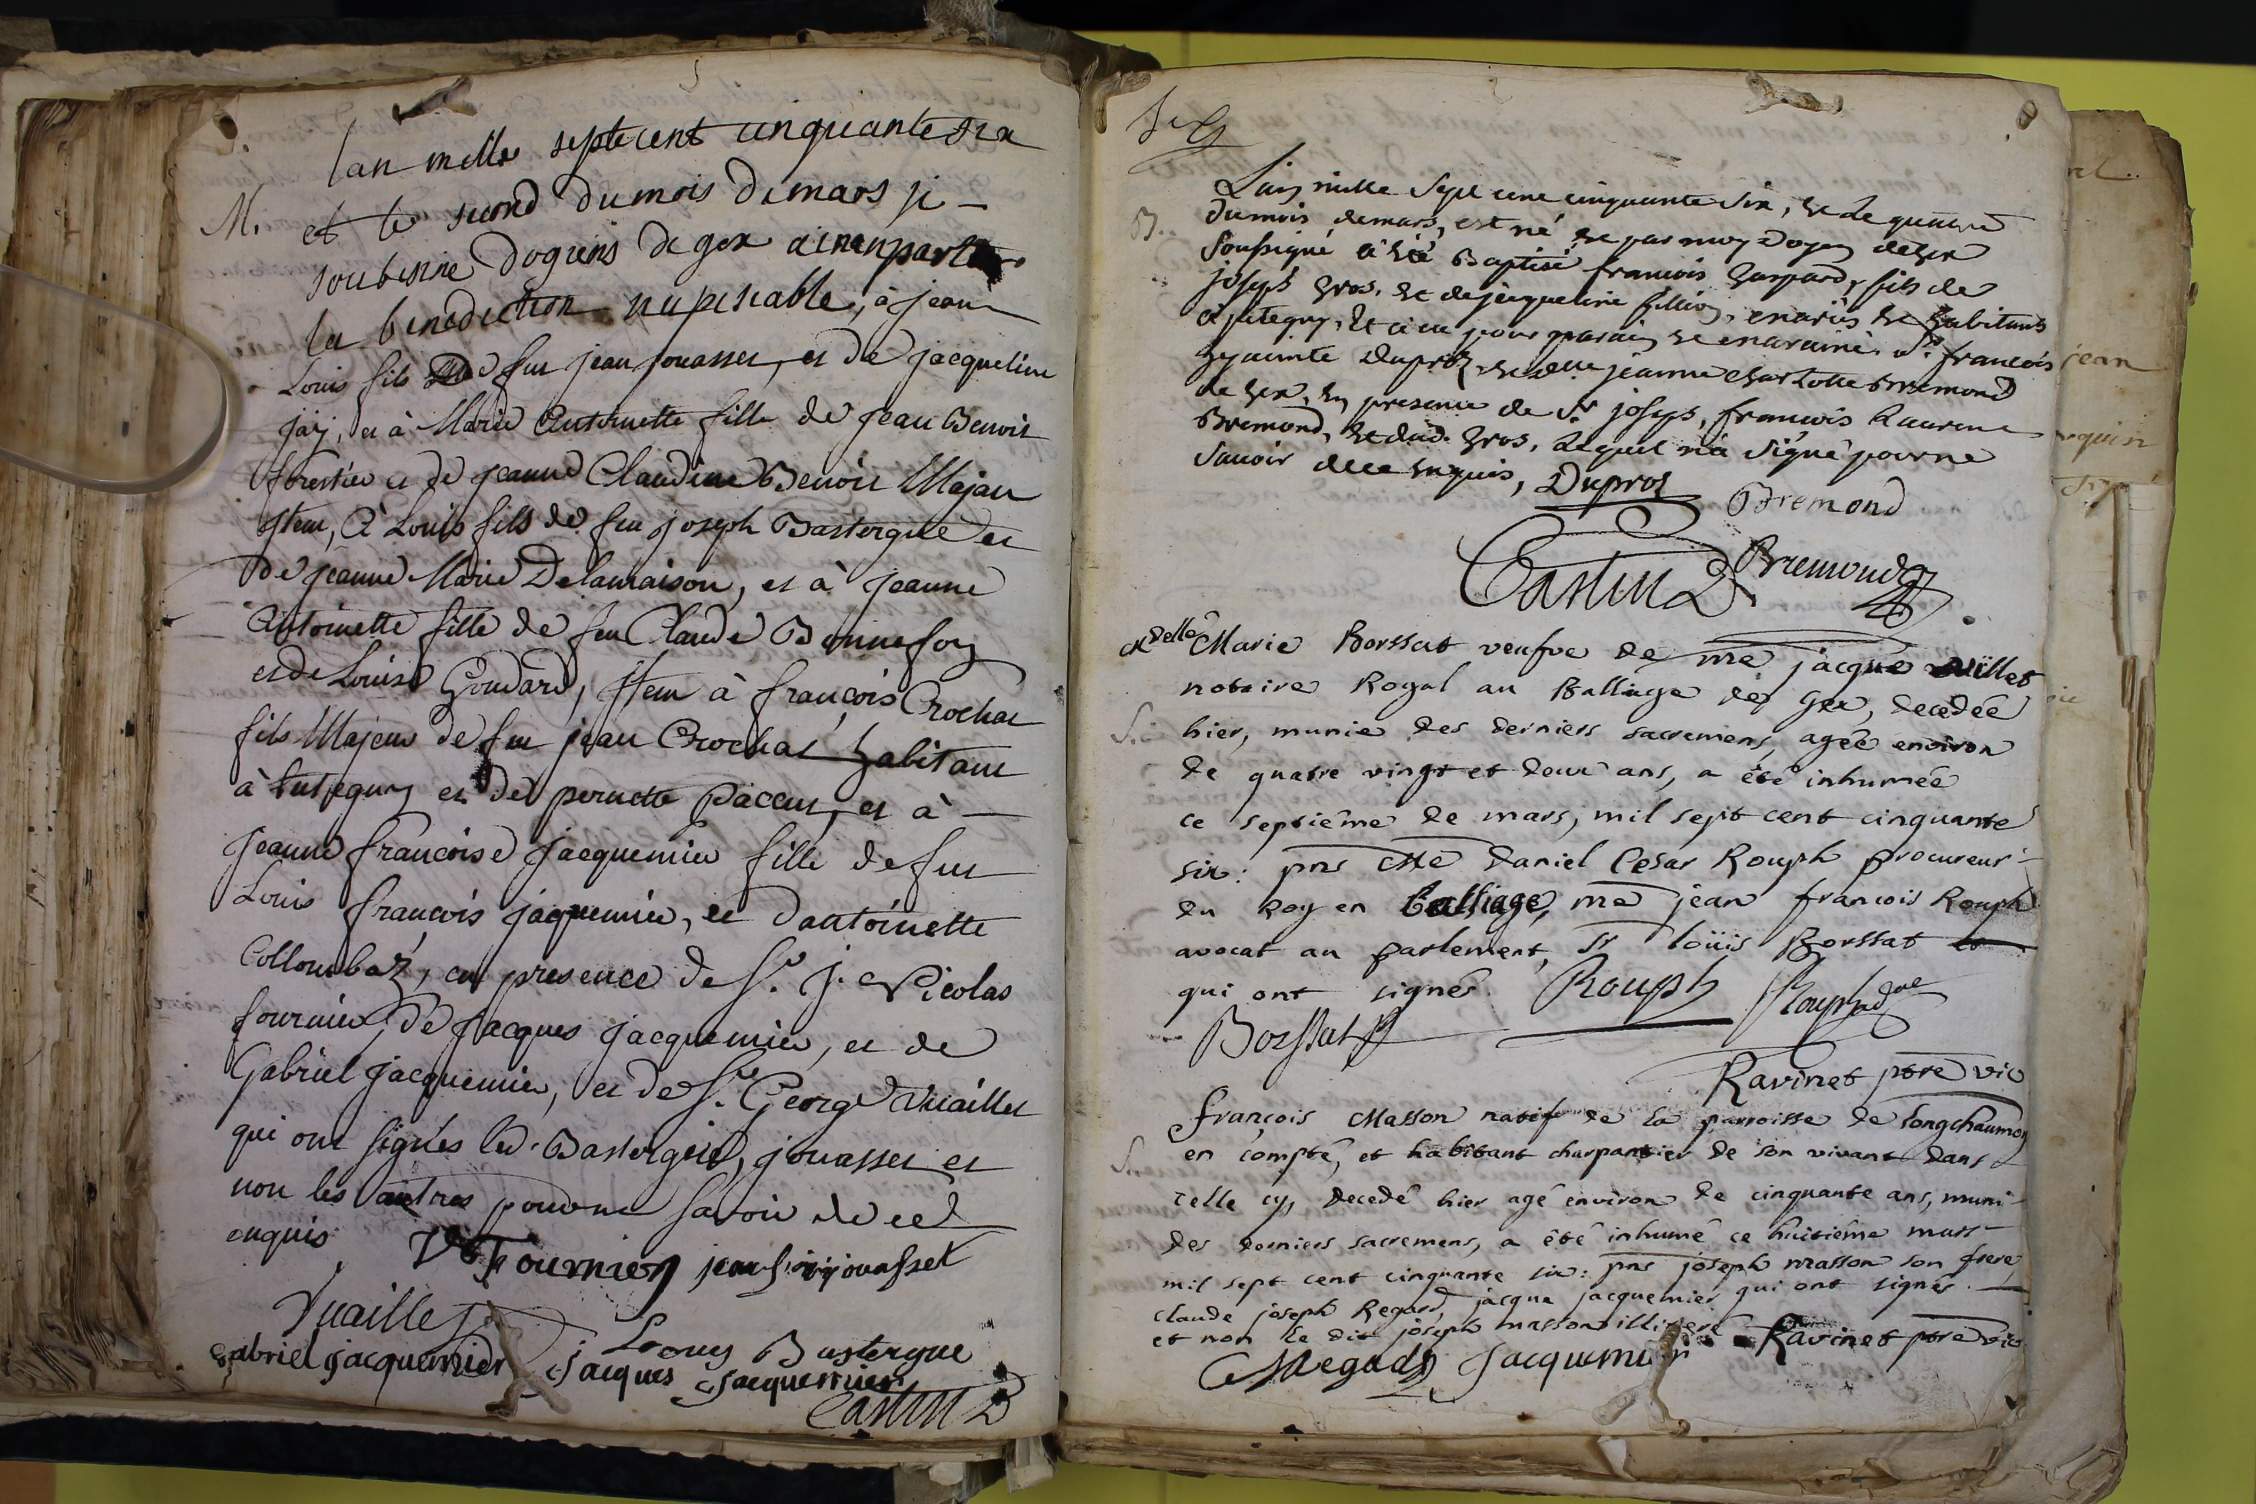 M.
lan mille septe cent cinquante six
et le second du mois de mars je
soubsine dogiens de gex ai
la benediction nupsiable, à jean
Louis fils de feu jean jouasset, et de jacqueline
jay, et à Marie Antoinette fille de jean Benoit
forestier et de jeanne Claudine Benoit Majeu
Item, à Louis fils de feu joseph Bastergue et
de jeanne Marie Delamaison, et à jeanne
Antoinette fille de feu Claude Bonnefoy
et de Louise Goudard, Item à françois Crochat
fils Majeur de feu jean Crochat habitant
à et de pernette Paccut, et à
jeanne françoise jacquemier fille de feu
Louis françois jaquemier, et dantoinette
Collombaz, en presence de Sr. j. Nicolas
fournier, de jacques jacquemier, et de
Gabriel jacquemier, et de Sr. George Vuaillet
qui ont signés led. Bastergue, jouasset et
non les autres pour ne savoir de ce
enquis
Fournier jean jouasset
Vuaillet
Louis Bastergue
gabriel jacquemier jacques jacquemier
Castin D
B.
Lan mille sept cent cinquante six, et le quatre
du mois de mars, est né et par moy Doyen de Gex
soussigné a été Baptisé francois Gaspard, fils de
joseph gros, et de jacqueline fillion, mariés et habitans
à et a eu pour parain et maraine, Sr francois
hyacinte Duproz, et delle jeanne Charlotte Bremond
de Gex, en presence de Sr joseph, francois Laurent
Bremond, et dud. gros, lequel n'a signé pour ne
sauoir de ce enquis, Duproz Bremond
Castin D Bremond
Delle Marie Borssat veufve de me jacque vuillet
notaire Royal au Balliage de Gex, decedée
S. hier, munie des derniers sacremens, agée environ
de quatre vingt et deux ans, a été inhumée
ce septiême de mars, mil sept cent cinquante
six: pns Me daniel Cesar Rouph procureur
du Roy en balliage, me jean francois Rouph
avocat au parlement, Sr loüis Borssat et
qui ont signés. Rouph Rouph adve
Borssat
Ravinet ptre vic
françois Masson natif de la parroisse de longchaumoy
S. en compté, et habitant charpantier de son vivant dans
celle cy, decedé hier agé environ de cinquante ans, muni
des derniers sacremens, a été inhumé ce huitiéme mars
mil sept cent cinquante six: pns joseph masson son frere,
claude joseph Regard, jacque jacquemier qui ont signés
et non le dit joseph masson illiteré. Ravinet ptre vic
Regard Jacquemier